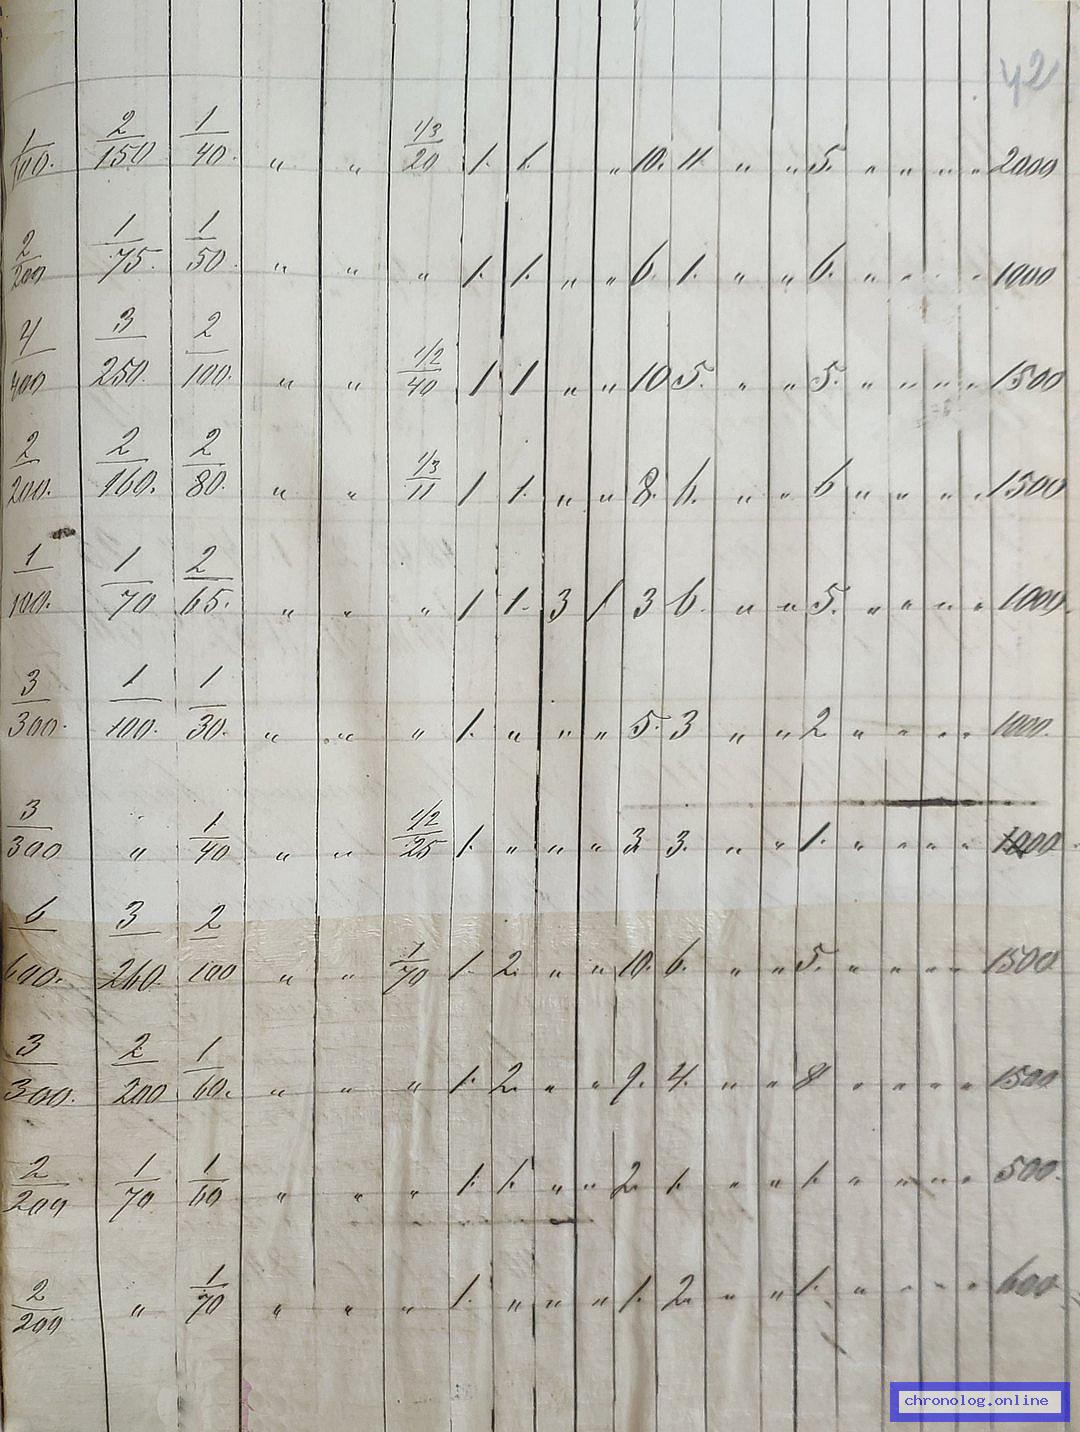 42
1/100. 2/150 1/40. " " 1/3/20 1. 1. " 10. 11. " " 5. " " " " 2000
2/200 1/75. 1/50. " " " 1. 1. " " 6. 1. " " 6. " " " 1000
4/400 3/250. 2/100. " " 1/2/40 1 1 " " 10 5. " " 5. " " " " 1500
2/200. 2/160. 2/80. " " 1/3/11 1 1. " " 8. 6. " " 6 " " " " 1500
1/100. 1/70 2/65. " " " 1 1. 3 1 3 6. " " 5. " " " " 1000.
3/300. 1/100. 1/30. " " " 1. " " " 5. 3 " " 2 " " " " 1000.
3/300 " 1/40 " " 1/2/25 1. " " " 3 3. " " 1. " " " "
6/600. 3/260. 2/100 " " 1/70 1. 2. " " 10. 6. " " 5. " " " " 1500
3/300. 2/200 1/60. " " " 1. 2. " " 9. 4. " " 8 " " " " 1500
2/200 1/70 1/60 " " " 1. 1. " " 2. 1. " " 1. " " " " 500.
2/200 " 1/70 " " " 1. " " " 1. 2. " " 1. " " " " 600
chronolog.online